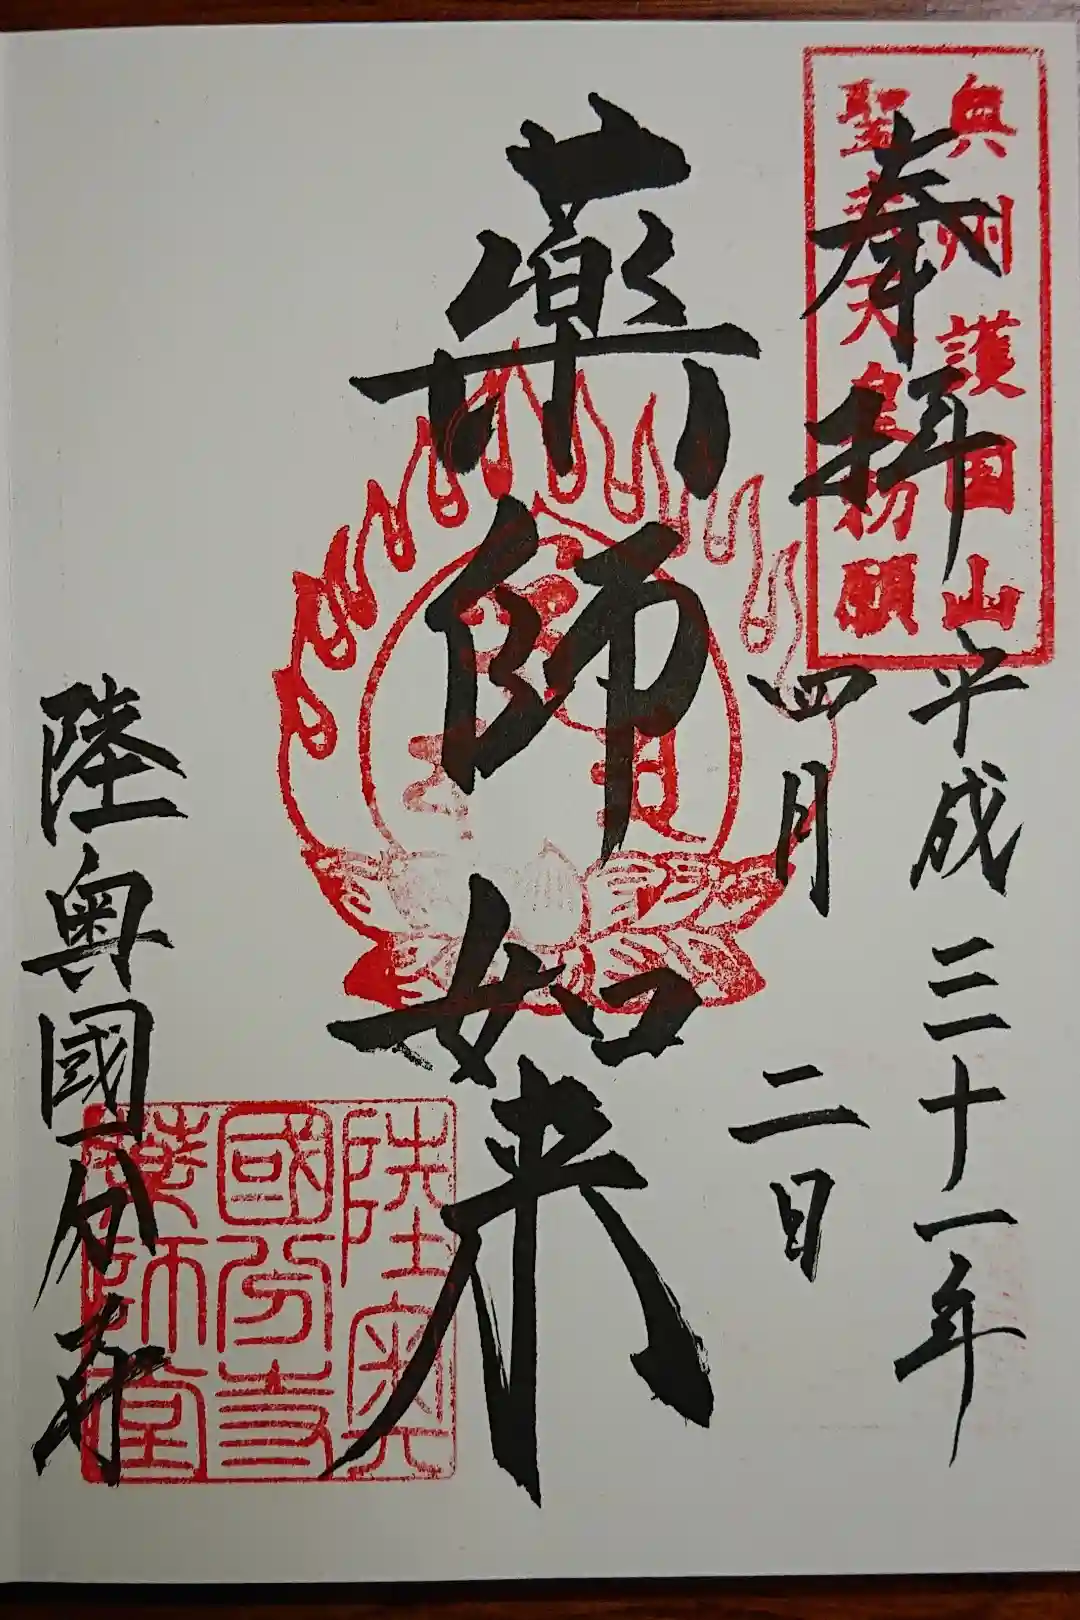 奥州護国山
聖武天皇勅願
奉拝
平成三十一年
四月二日
薬師如来
陸奥國分寺
陸奥
國分寺
薬師堂